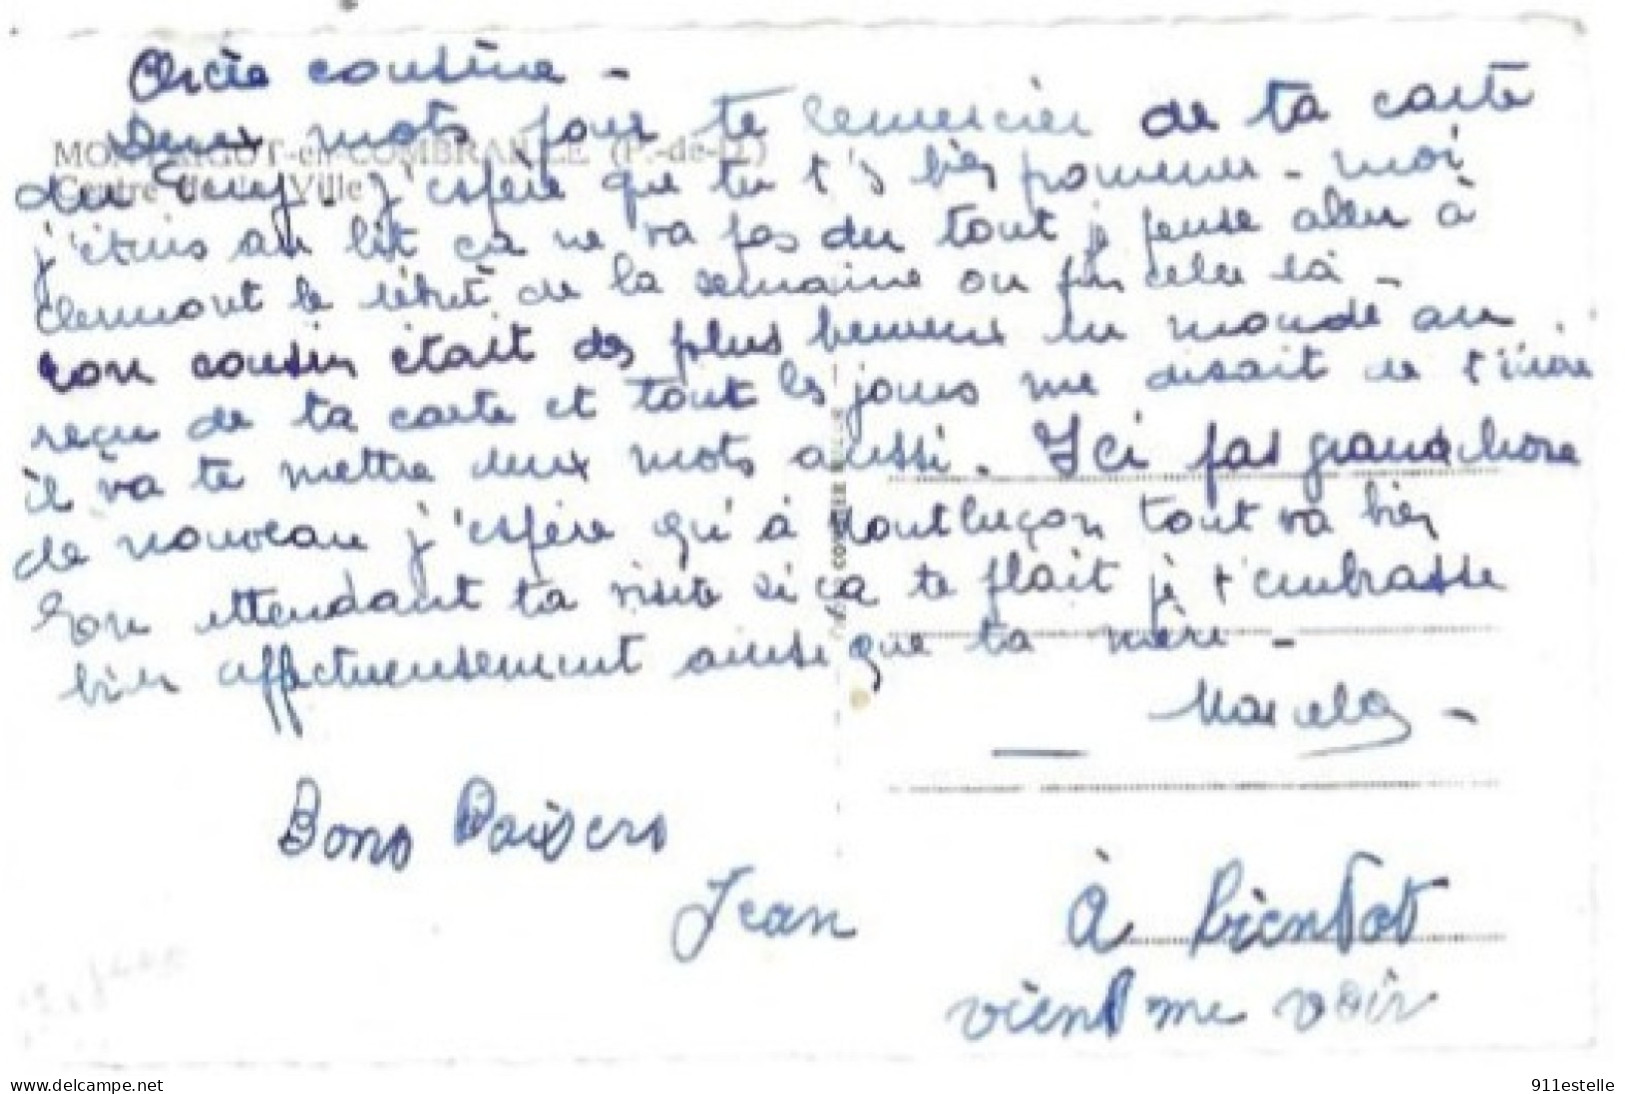 Chère cousine -
Deux mots pour te remercier de ta carte
MONTAIGUT-en-COMBRAILLE (P.-de-D.)
du j'espère que tu t's bien promener - moi
Centre de la Ville
j'étais au lit ca ne va pas du tout je pense aller à
clermont le début de la semaine ou fin celle là -
ton cousin était des plus heureux du monde au
reçu de ta carte et tout les jours me disait de t'écrire
il va te mettre deux mots aussi. Ici pas grand chose
de nouveau j'espère qu'à Montluçon tout va bien
En attendant ta visite si ça te plait je t'embrasse
bien affectueusement ainsi que ta mère -
Marcela -
Bons Baisers
Jean
à bientot
vient me voir
www.delcampe.net
911estelle